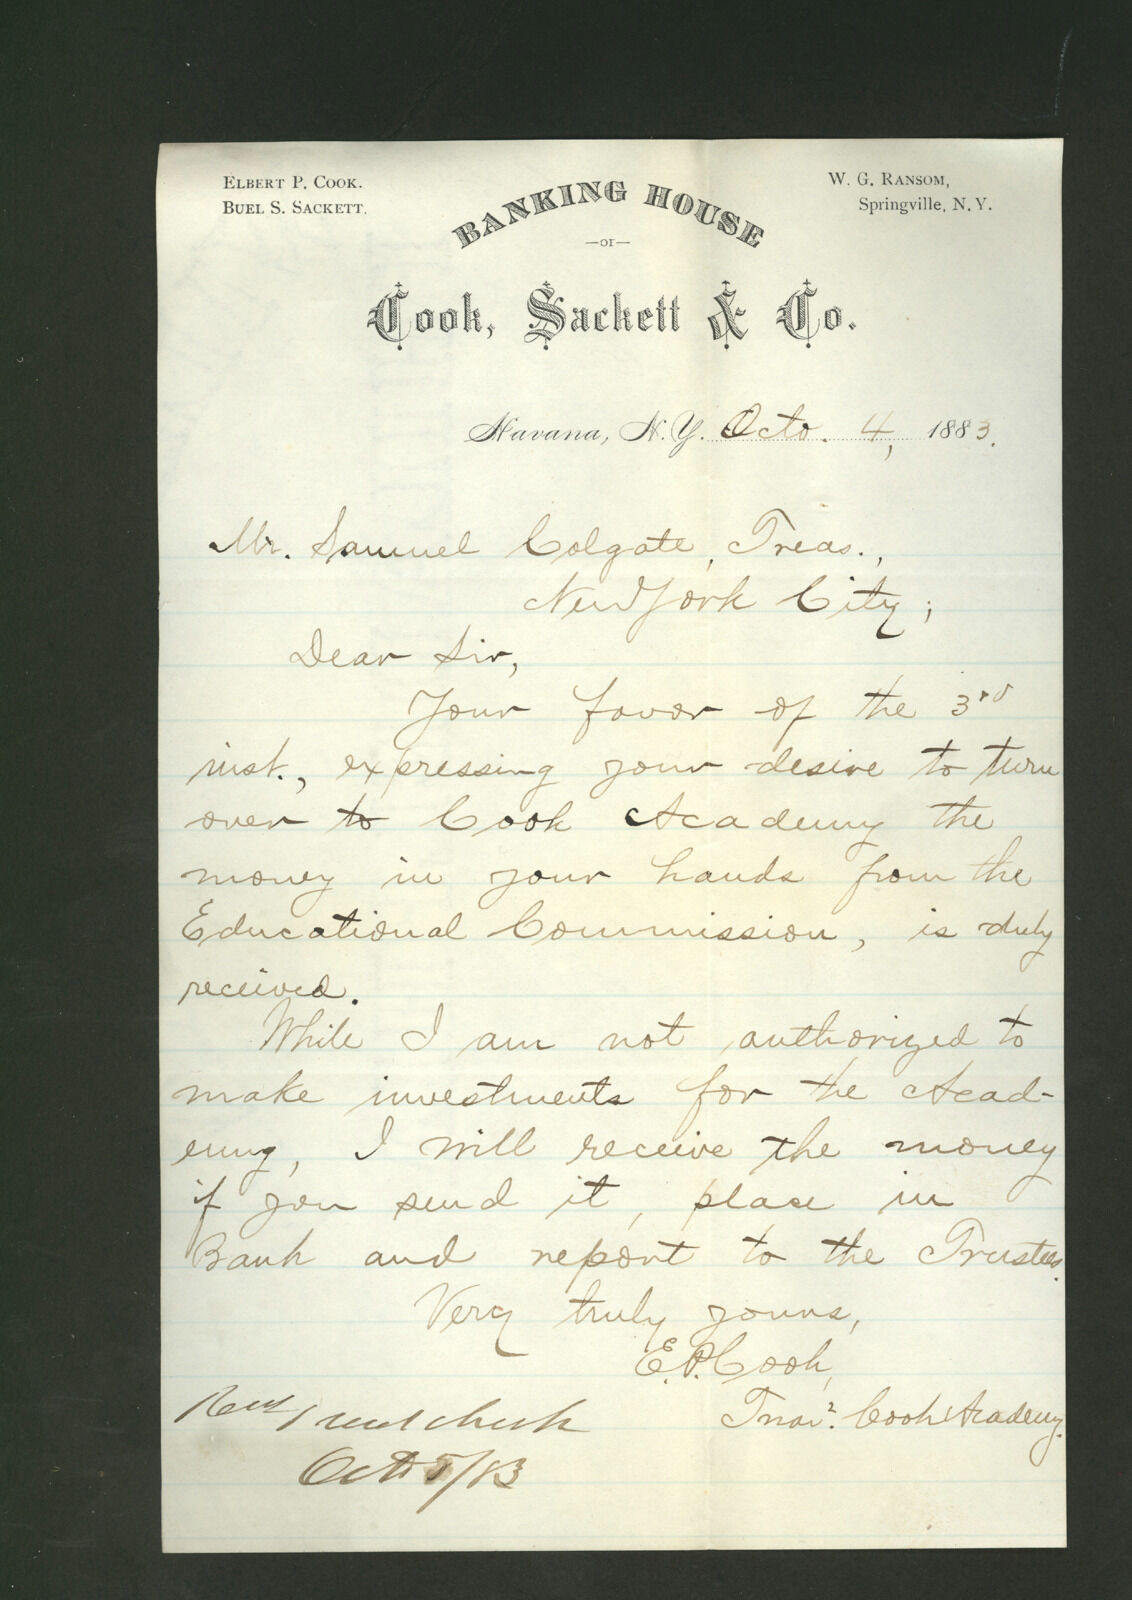 ELBERT P. COOK.
BUEL S. SACKETT.
W. G. RANSOM,
Springville, N. Y.
BANKING HOUSE
—OF—
Cook, Sackett & Co.
Havana, N. Y. Octo. 4, 1883.
Mr. Samuel Colgate, Treas.,
New York City;
Dear Sir,
Your favor of the 3rd
inst., expressing your desire to turn
over to Cook Academy the
money in your hands from the
Educational Commission, is duly
received.
While I am not authorized to
make investments for the Acad-
emy, I will receive the money
if you send it, place in
Bank and report to the Trustees.
Very truly yours,
E. P. Cook,
Cook Academy.
check
Oct 5/83